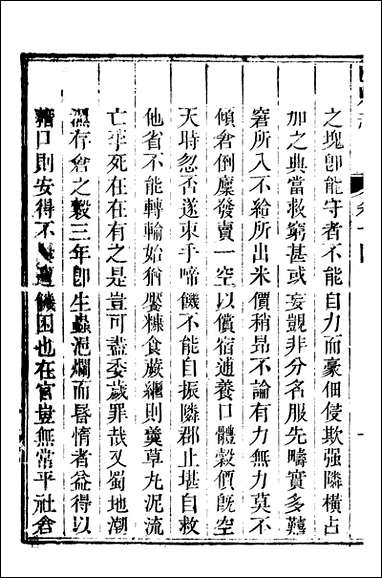 之塊卽能守者不能自力而豪佃侵欺强隣橫占
加之典當救窮甚或妄覬非分名服先疇實多難
窘所入不給所出米價稍昂不論有力無力莫不
傾倉倒廩發賣一空以償宿逋養口體穀價旣空
天時忽否遂束手啼饑不能自振隣郡止堪自救
他省不能轉輸始猶饜糠食蕨繼則羹草丸泥流
亡孚死在在有之是豈可盡委歲罪哉又蜀地潮
濕存倉之穀三年卽生蟲浥爛而昬惰者益得以
藉口則安得不遭饑困也在官豈無常平社倉